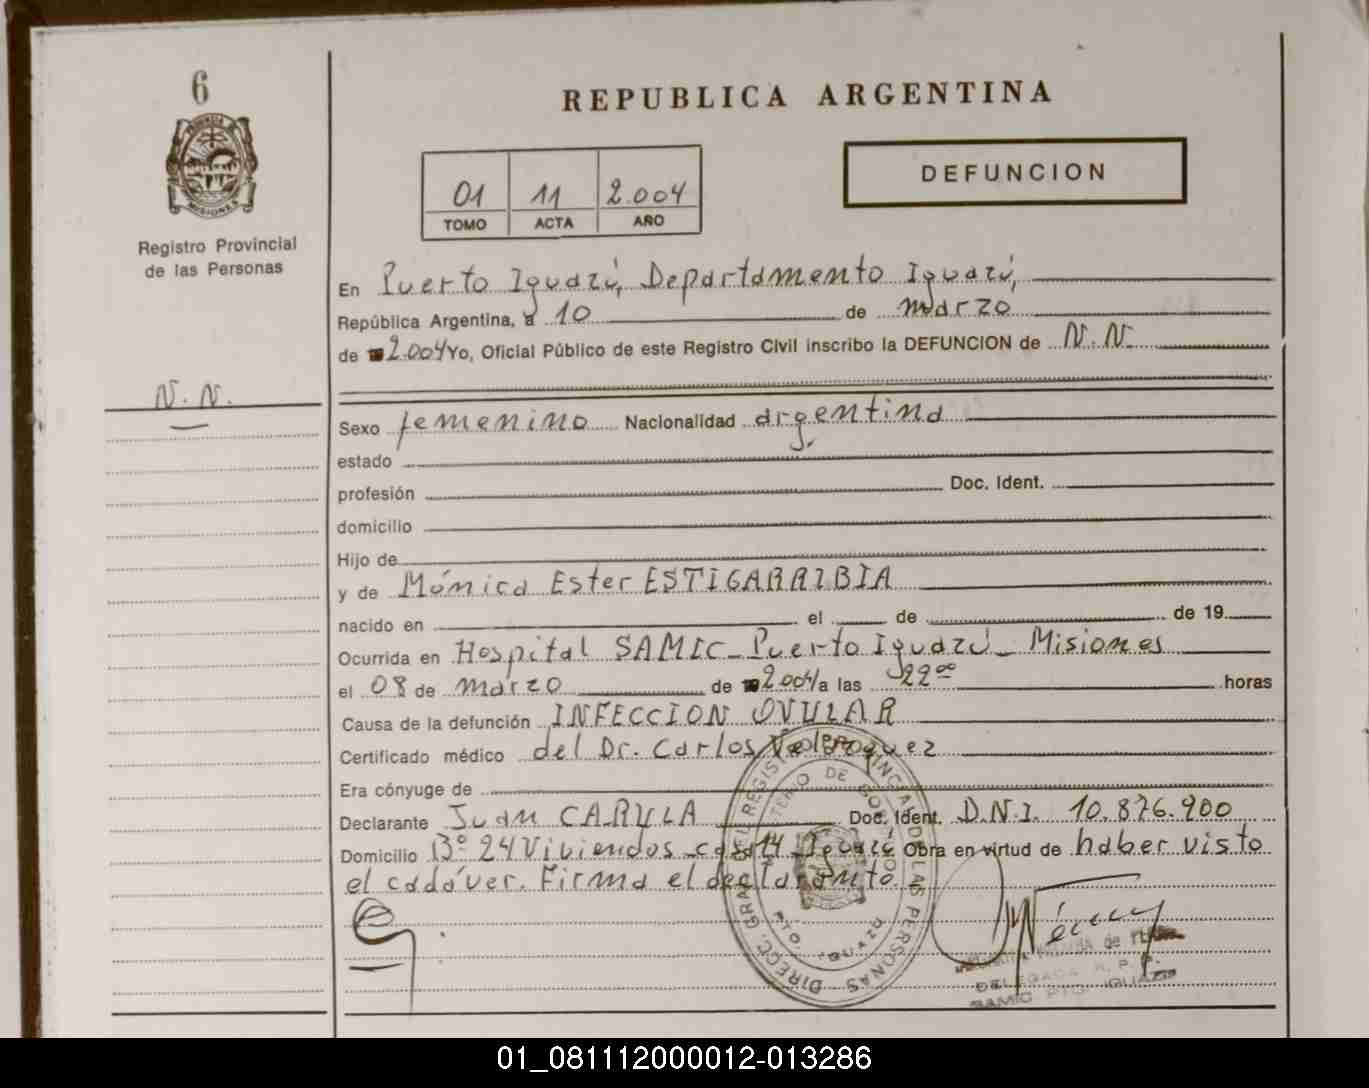 6
REPUBLICA ARGENTINA
PROVINCIA DE
MISIONES
Registro Provincial
de las Personas
01 11 2.004
TOMO ACTA AÑO
DEFUNCION
En Puerto Iguazú, Departamento Iguazú,
República Argentina, a 10 de marzo
de 2.004 Yo, Oficial Público de este Registro Civil inscribo la DEFUNCION de N.N.
N.N.
Sexo femenino Nacionalidad argentina
estado
profesión Doc. Ident.
domicilio
Hijo de
y de Mónica Ester ESTIGARRIBIA
nacido en el de de 19
Ocurrida en Hospital SAMIC - Puerto Iguazú - Misiones
el 08 de marzo de 2004 a las 22 00 horas
Causa de la defunción INFECCION OVULAR
Certificado médico del Dr. Carlos
Era cónyuge de
Declarante Juan CARULA Doc. Ident. D.N.I. 10.876.900
Domicilio Bº 24 Viviendas casa 14 Iguazú Obra en virtud de haber visto
el cadáver. Firma el declarante.
DIRECC. GRAL. DEL REGISTRO PROVINCIAL DE LAS PERSONAS
MINISTERIO DE GOBIERNO
PTO. IGUAZU
DELEGADA R. P. P.
SAMIC PTO. IGUAZU
01_081112000012-013286